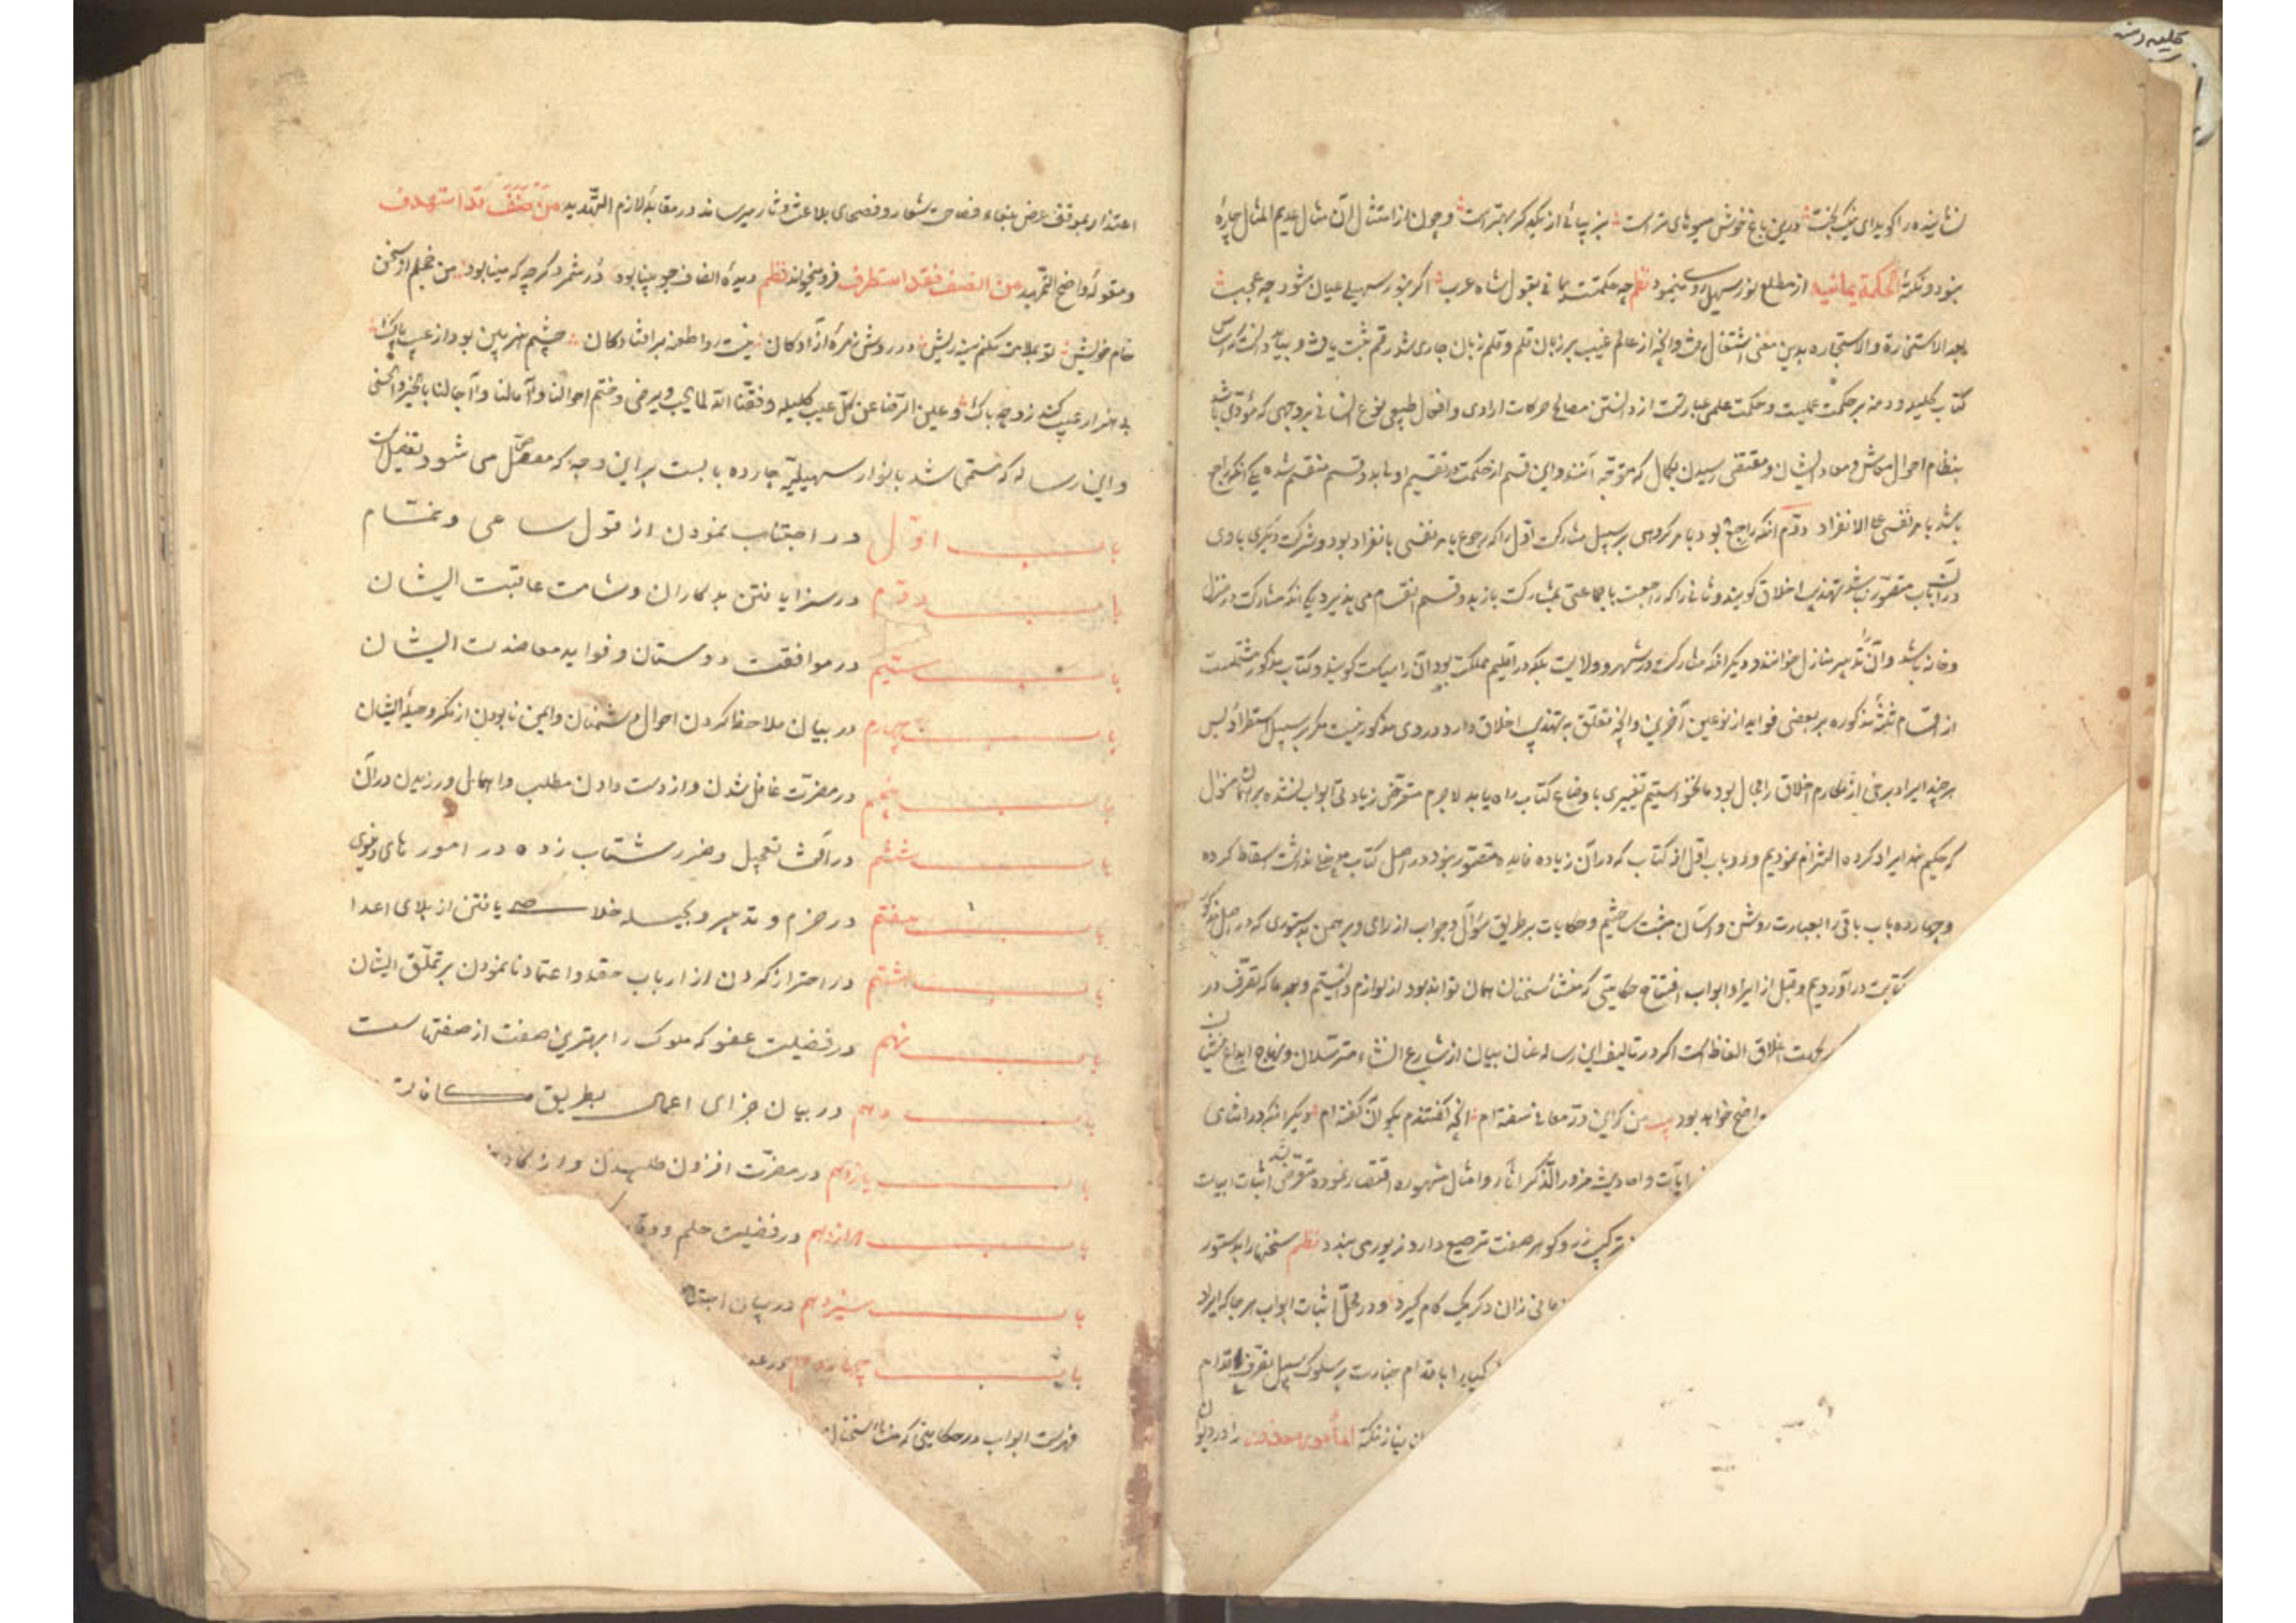 کلیله دمنه
نشانیده را کوید ای نیکبخت درین باغ خوش میوهای تر است بزیبائی از یکدگر بهتر است و چون از امتثال آن مثال عدیم المثال چارهٔ
نبود و نکتهٔ الحکمة یمانیة از مطلع نور سهیل روی مینمود نظم چه حکمت یمانی بقول شاه عرب اگر ز نور سهیلی عیان شود چه عجب
بعد الاستخارة والاستجاره بدین معنی اشتغال و انچه از عالم غیب بر زبان قلم و قلم زبان جاری شد رقم ثبت یافت و بباید دانست که اساس
کتاب کلیله و دمنه بر حکمت عملیست و حکمت عملی عبارتست از دانستن مصالح حرکات ارادی و افعال طبیعی نوع انسانی بر وجهی که مؤدی باشد
بنظام احوال معاش و معاد ایشان و مقتضی رسیدن بکمال که متوجه آنند و این قسم از حکمت در تقسیم اولی بدو قسم منقسم شده یکی آنکه راجع
باشد با هر نفسی علی الانفراد دوم انکه راجع بود با هر گروهی بر سبیل مشارکت اول را که رجوع با هر نفسی بانفراد بود و شرکت دیکری با وی
در آن باب متصور نباشد تهذیب اخلاق کویند و ثانی را که راجعست با جماعتی بمشارکت باز بدو قسم انقسام می پذیرد یکی انکه مشارکت در منزل
و خانه باشد و ان را تدبیر منازل خوانند و دیکر انکه مشارکت در شهر و ولایت بلکه در اقلیم و مملکت بود آن را سیاست کویند و کتاب مذکور مشتملست
از اقسام ثلثه مذکوره بر بعضی فواید از نوعین آخرین و انچه تعلق به تهذیب اخلاق دارد در وی مذکور نیست مکر بر سبیل استطراد پس
هر چند ایراد برخی از مکارم اخلاق را مجال بود ما نخواستیم تغییری باوضاع کتاب راه یابد لاجرم متعرض زیادتی ابواب نشده بر همان منوال
که حکیم هند ایراد کرده التزام نمودیم و دو باب اول از کتاب که در آن زیاده فایده متصور نبود و در اصل کتاب مدخل نداشت اسقاط کرده
و چهارده باب باقی را بعبارت روشن و آسان مثبت ساختیم و حکایات بر طریق سؤال و جواب از رای و برهمن بدستوری که در اصل مذکور
کتابت در آوردیم و قبل از ایراد ابواب افتتاح حکایتی که منشأ سخنان همان تواند بود از لوازم دانستیم و بعد ما که تصرف در
اغلاق الفاظ است اکر در تالیف این رساله عنان بیان از شارع انشاء مترسلان و منهاج ابداع منشیان
واضح خواهد بود بیت من کر این در معانی سفته ام انچه گفتندم بکو آن گفته ام دیکر انکه در اثنای
ایات و احادیث ضرور الذکر اثار و امثال مشهوره اقتصار نموده متعرض اثبات ابیات
ترکیب زر و کوهر صفت ترصیع دارد زیور می بندد نظم سخنها را بدستور
زمانی زان در یک کام کیرد و در محل اثبات ابواب هر جا که ایراد
را با قدام جسارت بر سلوک سبیل تصرف اقدام
نیاز نکته المأمور معذور را در دیوان
اعتذار بموقف عرض بلغاء فصاحت شعار و فصحای بلاغت دثار میرساند در مقابله لازم التهدید من صنف قد استهدف
و مقوله واضح التمهید من انصف فقد استظرف فرو میخواند نظم دیده انصاف جو بینا بود در شمرد کرچه که مینا بود من خجلم از سخن
خام خویش تو بملامت مکنم سینه ریش در روش زمرهٔ آزادکان نیست روا طعنه بر افتادکان چشم هنر بین بود از عیب پاک
بی هنر ار عیب کند زو چه باک و عین الرضا عن کل عیب کلیله وفقنا الله لما یحب و یرضی وختم احوالنا و آمالنا و آجالنا بالخیر والحسنی
و این رساله که مسمی شد بانوار سهیلی چارده بابست بر این وجه که مفصل می شود تفصیل
باب اول در اجتناب نمودن از قول ساعی و نمام
باب دوم در سزا یافتن بدکاران و شامت عاقبت ایشان
باب سیم در موافقت دوستان و فواید معاضدت ایشان
باب چهارم در بیان ملاحظه کردن احوال دشمنان و ایمن نابودن از مکر و حیله ایشان
باب پنجم در مضرت غافل شدن و از دست دادن مطلب و اهمال ورزیدن در آن
باب ششم در آفت تعجیل و ضرر شتاب زده در امور های
باب هفتم در حزم و تدبیر و بحیله خلاص یافتن از بلای اعدا
باب هشتم در احتراز کردن از ارباب حقد و اعتماد نانمودن بر تملق ایشان
باب نهم در فضیلت عفو که ملوک را بهترین صفت از صفتهاست
باب دهم در بیان جزای اعمال بطریق مکافات
باب یازدهم در مضرت افزون طلبیدن و از کار
باب دوازدهم در فضیلت حلم و وقار
باب سیزدهم در بیان اجتناب
باب چهاردهم در عدم
فهرست ابواب در حکایتی که منشأ سخنان